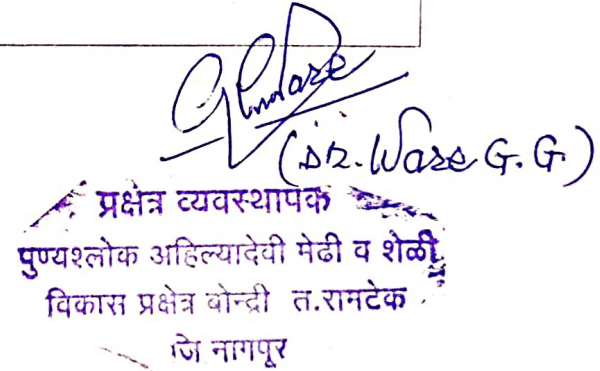 (Dr. Ware G. G.)
प्रक्षेत्र व्यवस्थापक
पुण्यश्लोक अहिल्यादेवी मेढी व शेळी
विकास प्रक्षेत्र बोन्द्री त.रामटेक
जि नागपूर